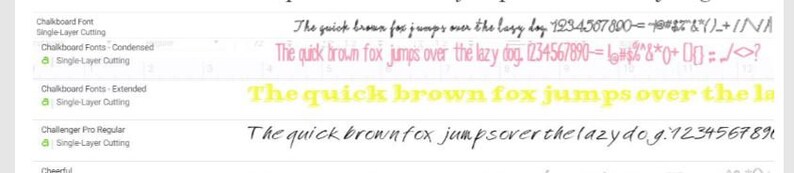 Chalkboard Font
Single-Layer Cutting
The quick brown fox jumps over the lazy dog. 1234567890-=
Chalkboard Fonts - Condensed
Single-Layer Cutting
The quick brown fox jumps over the lazy dog. 1234567890-= !@#$%^&*()+ []{} :; ../<>?
Chalkboard Fonts - Extended
Single-Layer Cutting
The quick brown fox jumps over the la
Challenger Pro Regular
Single-Layer Cutting
The quick brown fox jumps over the lazy dog. 123456789
Cheerful